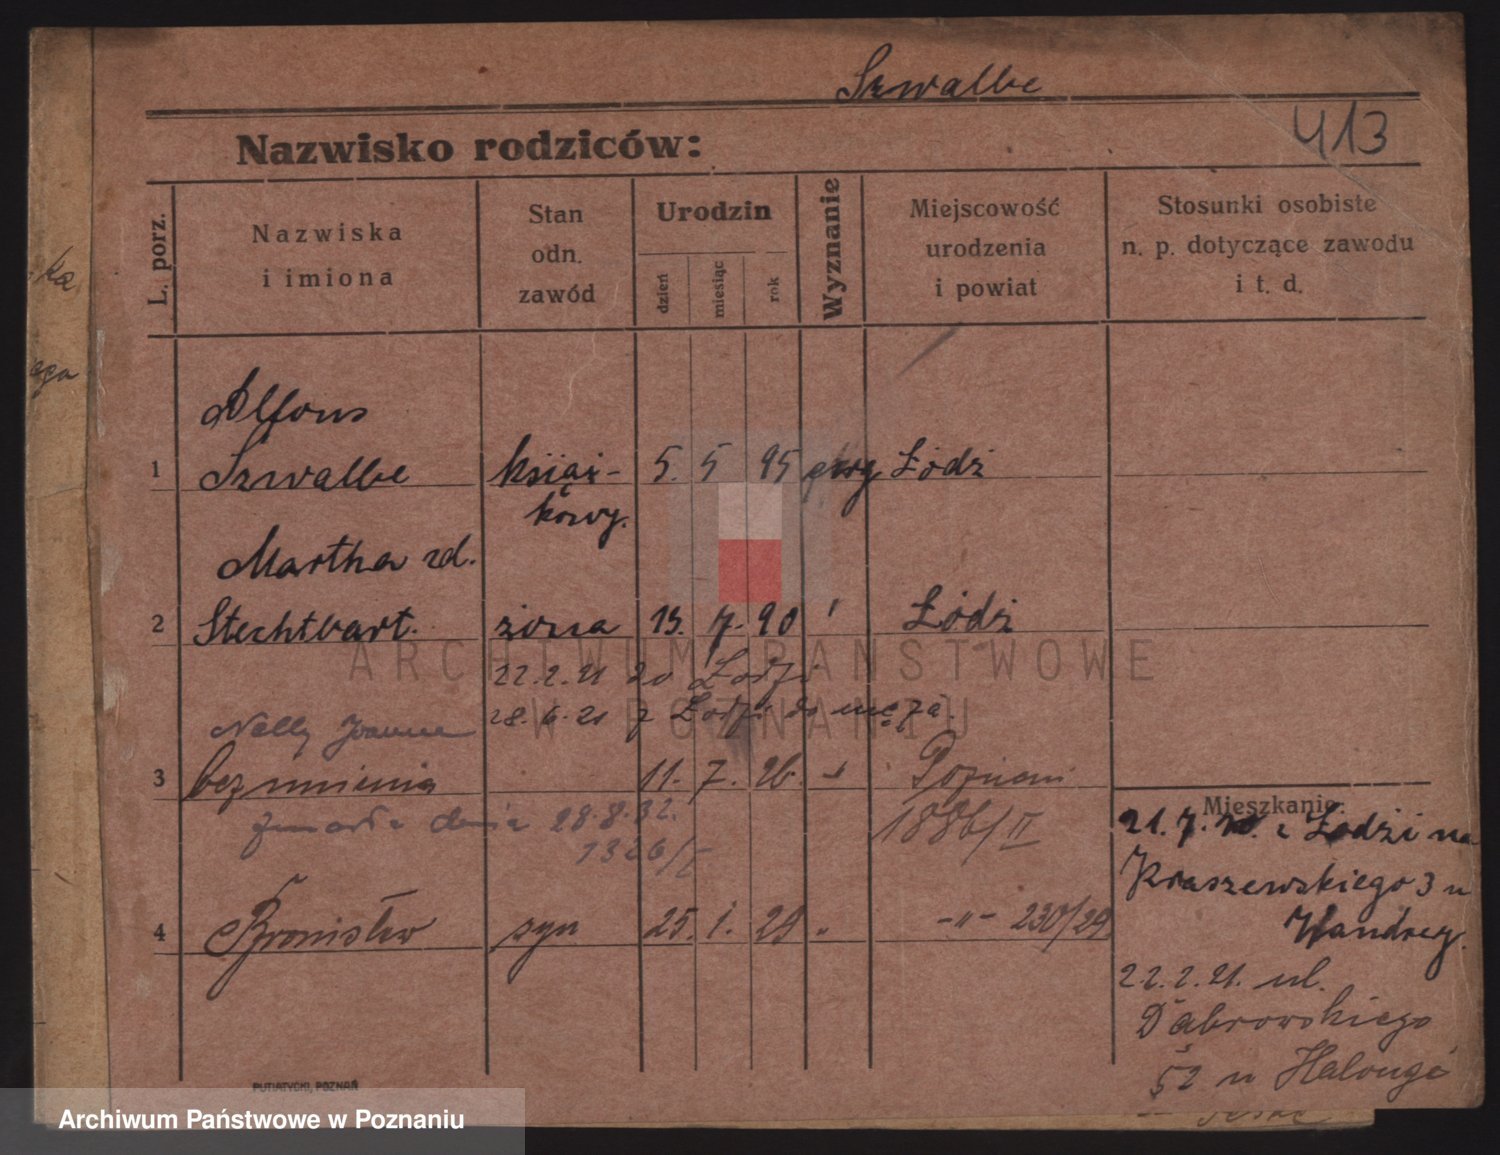 Szwalbe
413
Nazwisko rodziców:
L. porz.
Nazwiska
i imiona
Stan
odn.
zawód
Urodzin
dzień
miesiąc
rok
Wyznanie
Miejscowość
urodzenia
i powiat
Stosunki osobiste
n. p. dotyczące zawodu
i t. d.
ka
ega
Alfons
1 Szwalbe książ- 5. 5 95 Łódź
kowy.
Martha zd.
2 Stechtbart. żona 13. 7. 90 Łódź
22.2.21 do Łodzi
Nelly Joanna 28.6.21 z Łodzi do męża.
3 bez imienia 11. 7. 26. Poznań
zmarła dnia 28.8.32. 1886/II
1326/I
4 Bronisław syn 25. 1. 29 „ -"- 230/29
Mieszkanie:
21.7.20. z Łodzi na
Kraszewskiego 3 u
22.2.21. ul.
Dąbrowskiego
52 u
PUTIATYCKI, POZNAŃ
ARCHIWUM PAŃSTWOWE
W POZNANIU
Archiwum Państwowe w Poznaniu